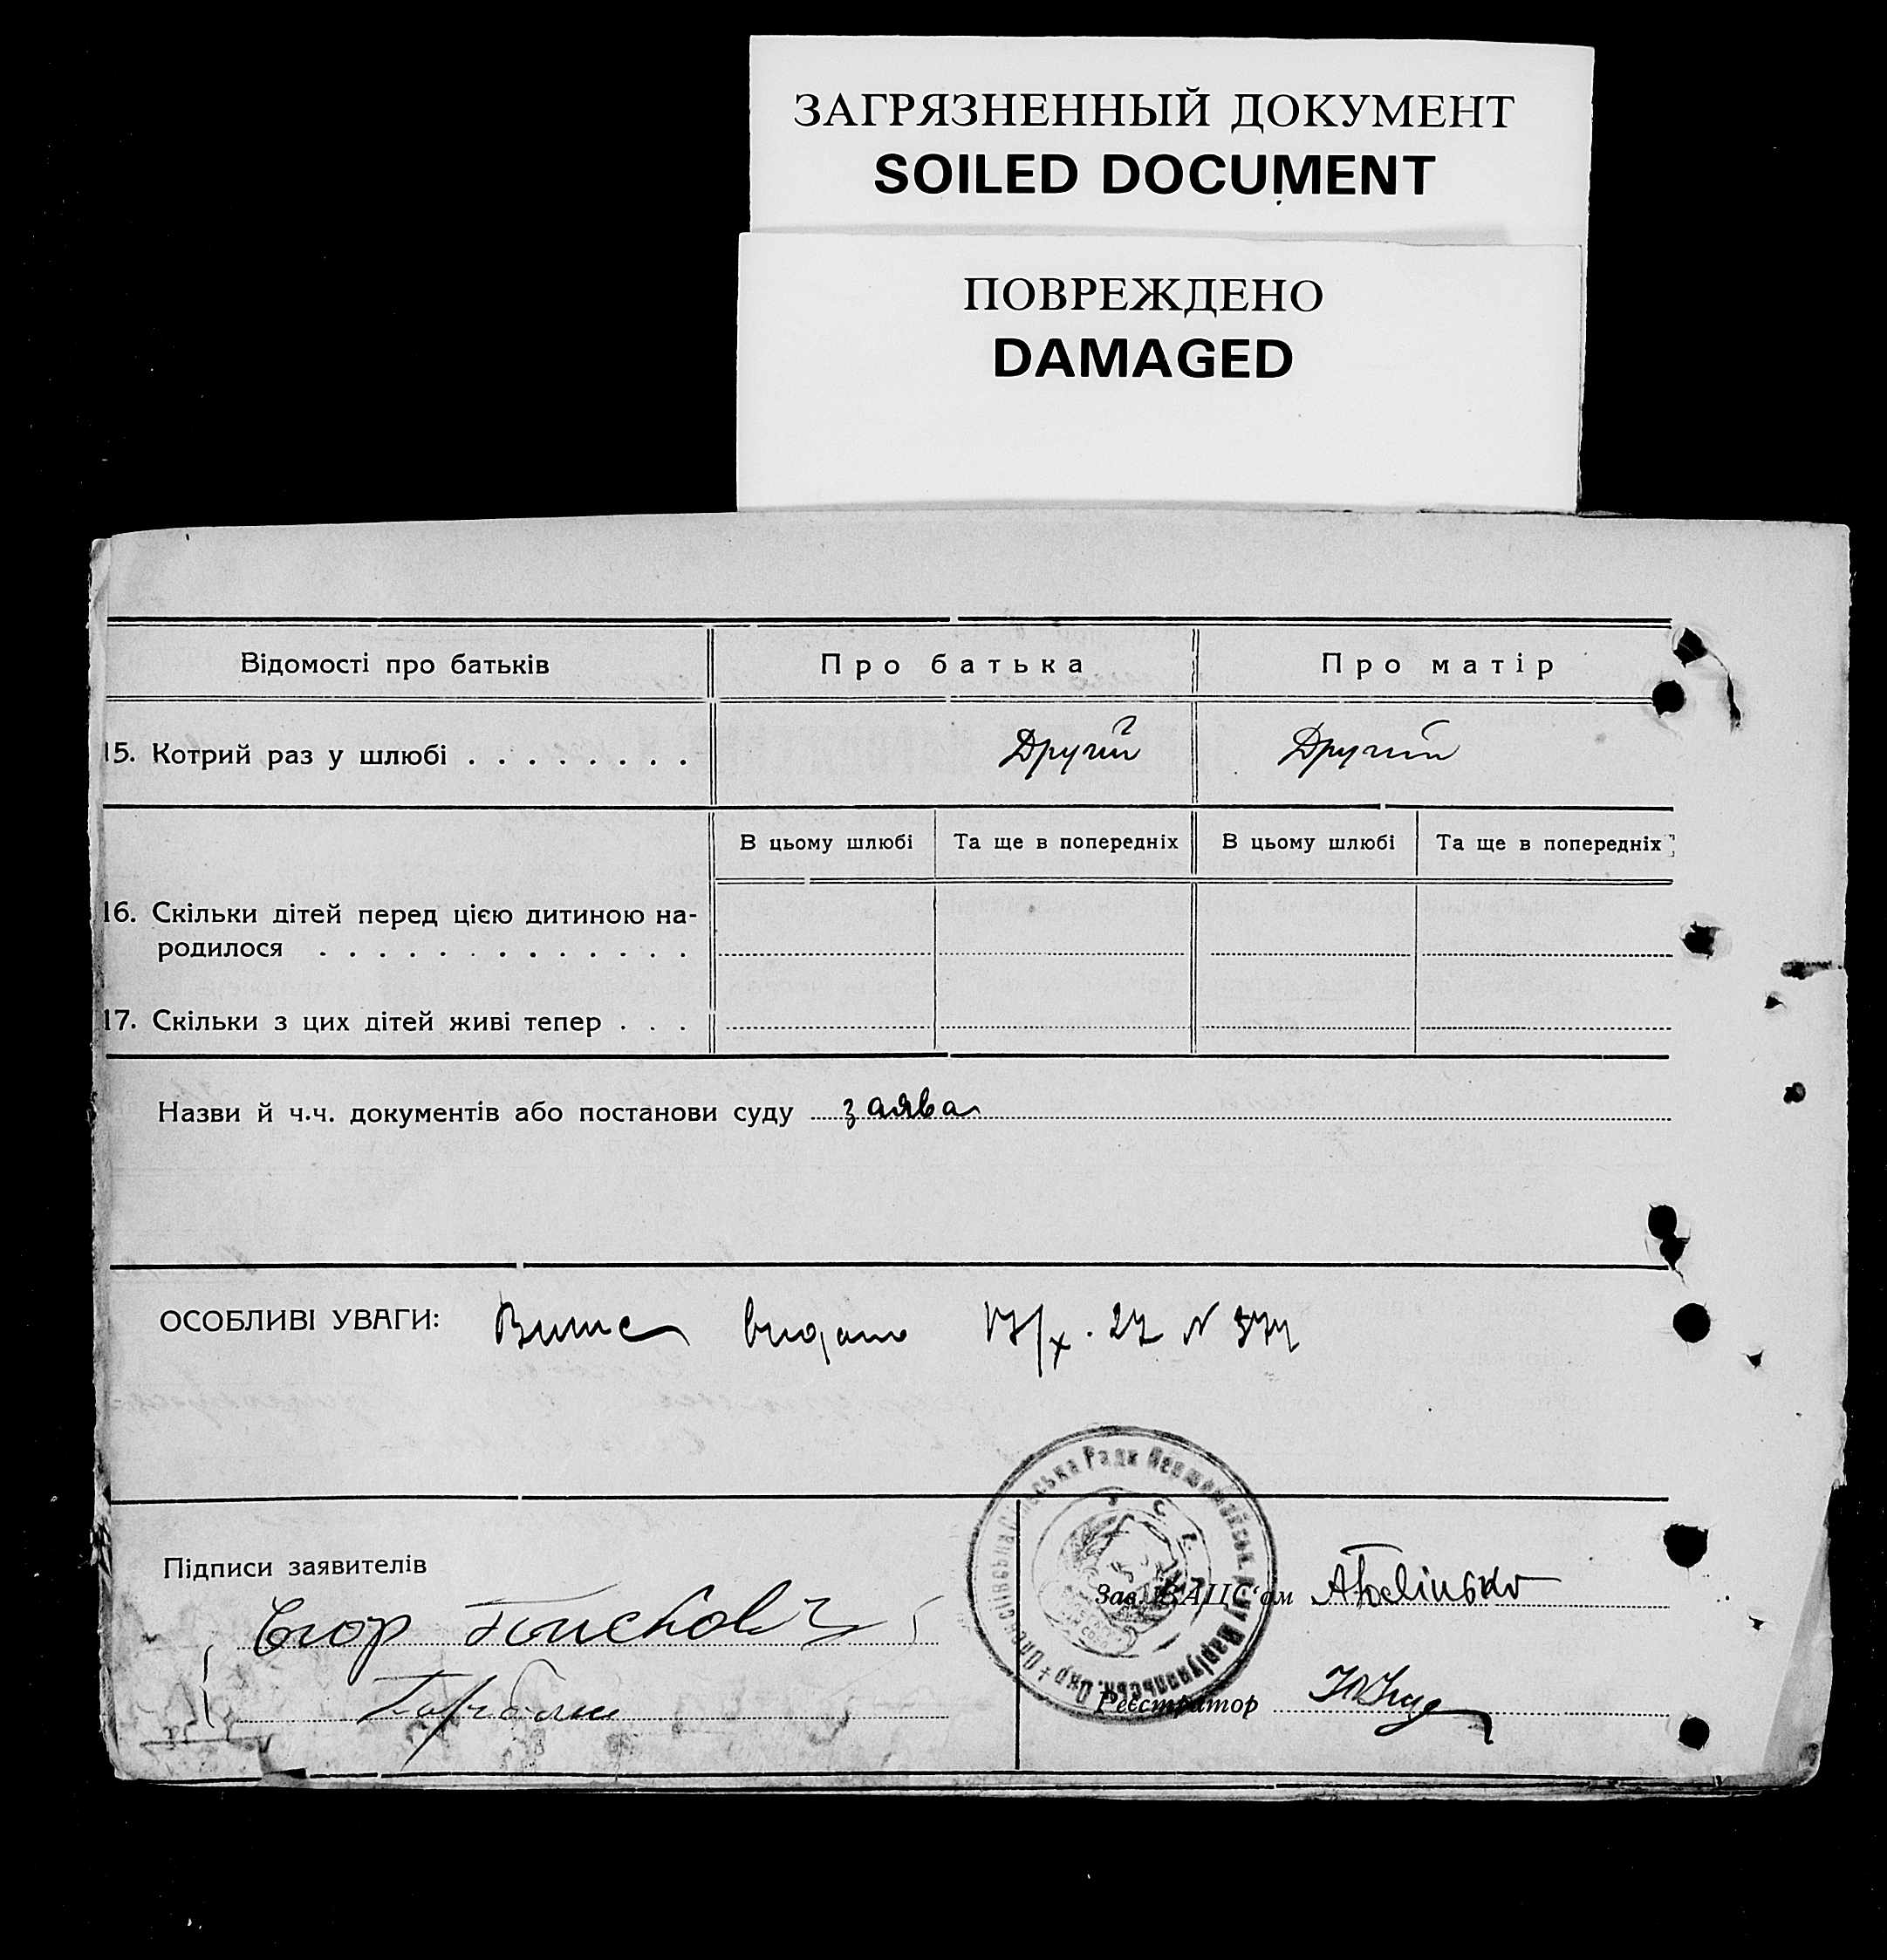 ЗАГРЯЗНЕННЫЙ ДОКУМЕНТ
SOILED DOCUMENT
ПОВРЕЖДЕНО
DAMAGED
Відомості про батьків Про батька Про матір
15. Котрий раз у шлюбі . . . . . . . . Другий Другий
В цьому шлюбі Та ще в попередніх В цьому шлюбі Та ще в попередніх
16. Скільки дітей перед цією дитиною на-
родилося . . . . . . . . . . . . .
17. Скільки з цих дітей живі тепер . . .
Назви й ч.ч. документів або постанови суду заява
ОСОБЛИВІ УВАГИ: Випис видано 17/X. 27 N
Підписи заявителів
Зав. ВАЦС‘ом
Єгор
Реєстратор
Рада Першотравенськ. Р-ну Маріупольськ. Окр.